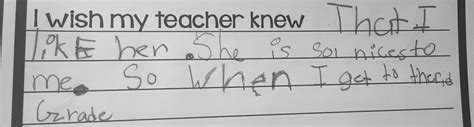 I wish my teacher knew That I
like her. She is so nices to
me. So When I get to there
Grade